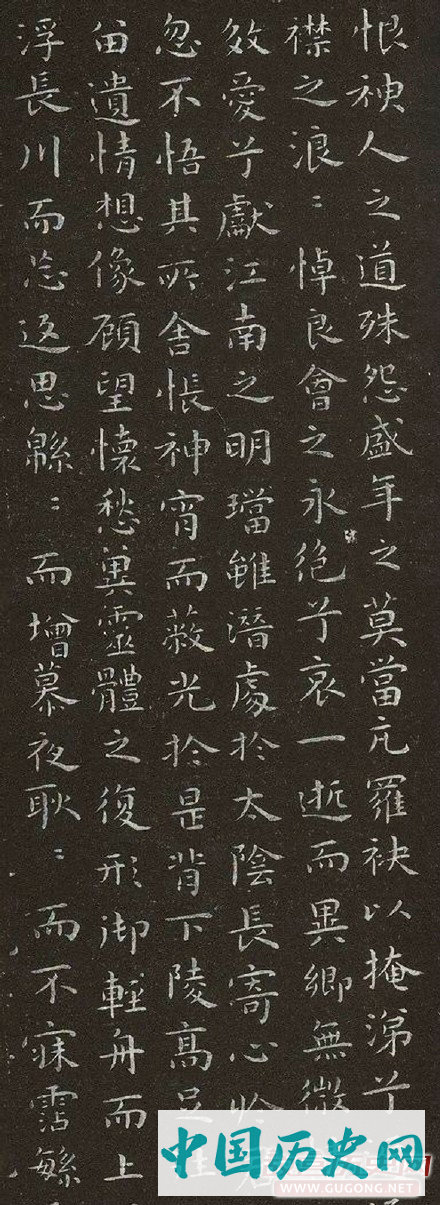 恨神人之道殊怨盛年之莫當亢羅袂以掩涕兮
襟之浪〻悼良會之永絕兮哀一逝而異鄉無微
效愛兮獻江南之明璫雖潛處於太陰長寄心於
忽不悟其所舍悵神宵而蔽光於是背下陵高足
留遺情想像顧望懷愁冀靈體之復形御輕舟而上
浮長川而忘返思緜〻而增慕夜耿〻而不寐霑繁
中国历史网
WWW.GUGONG.NET